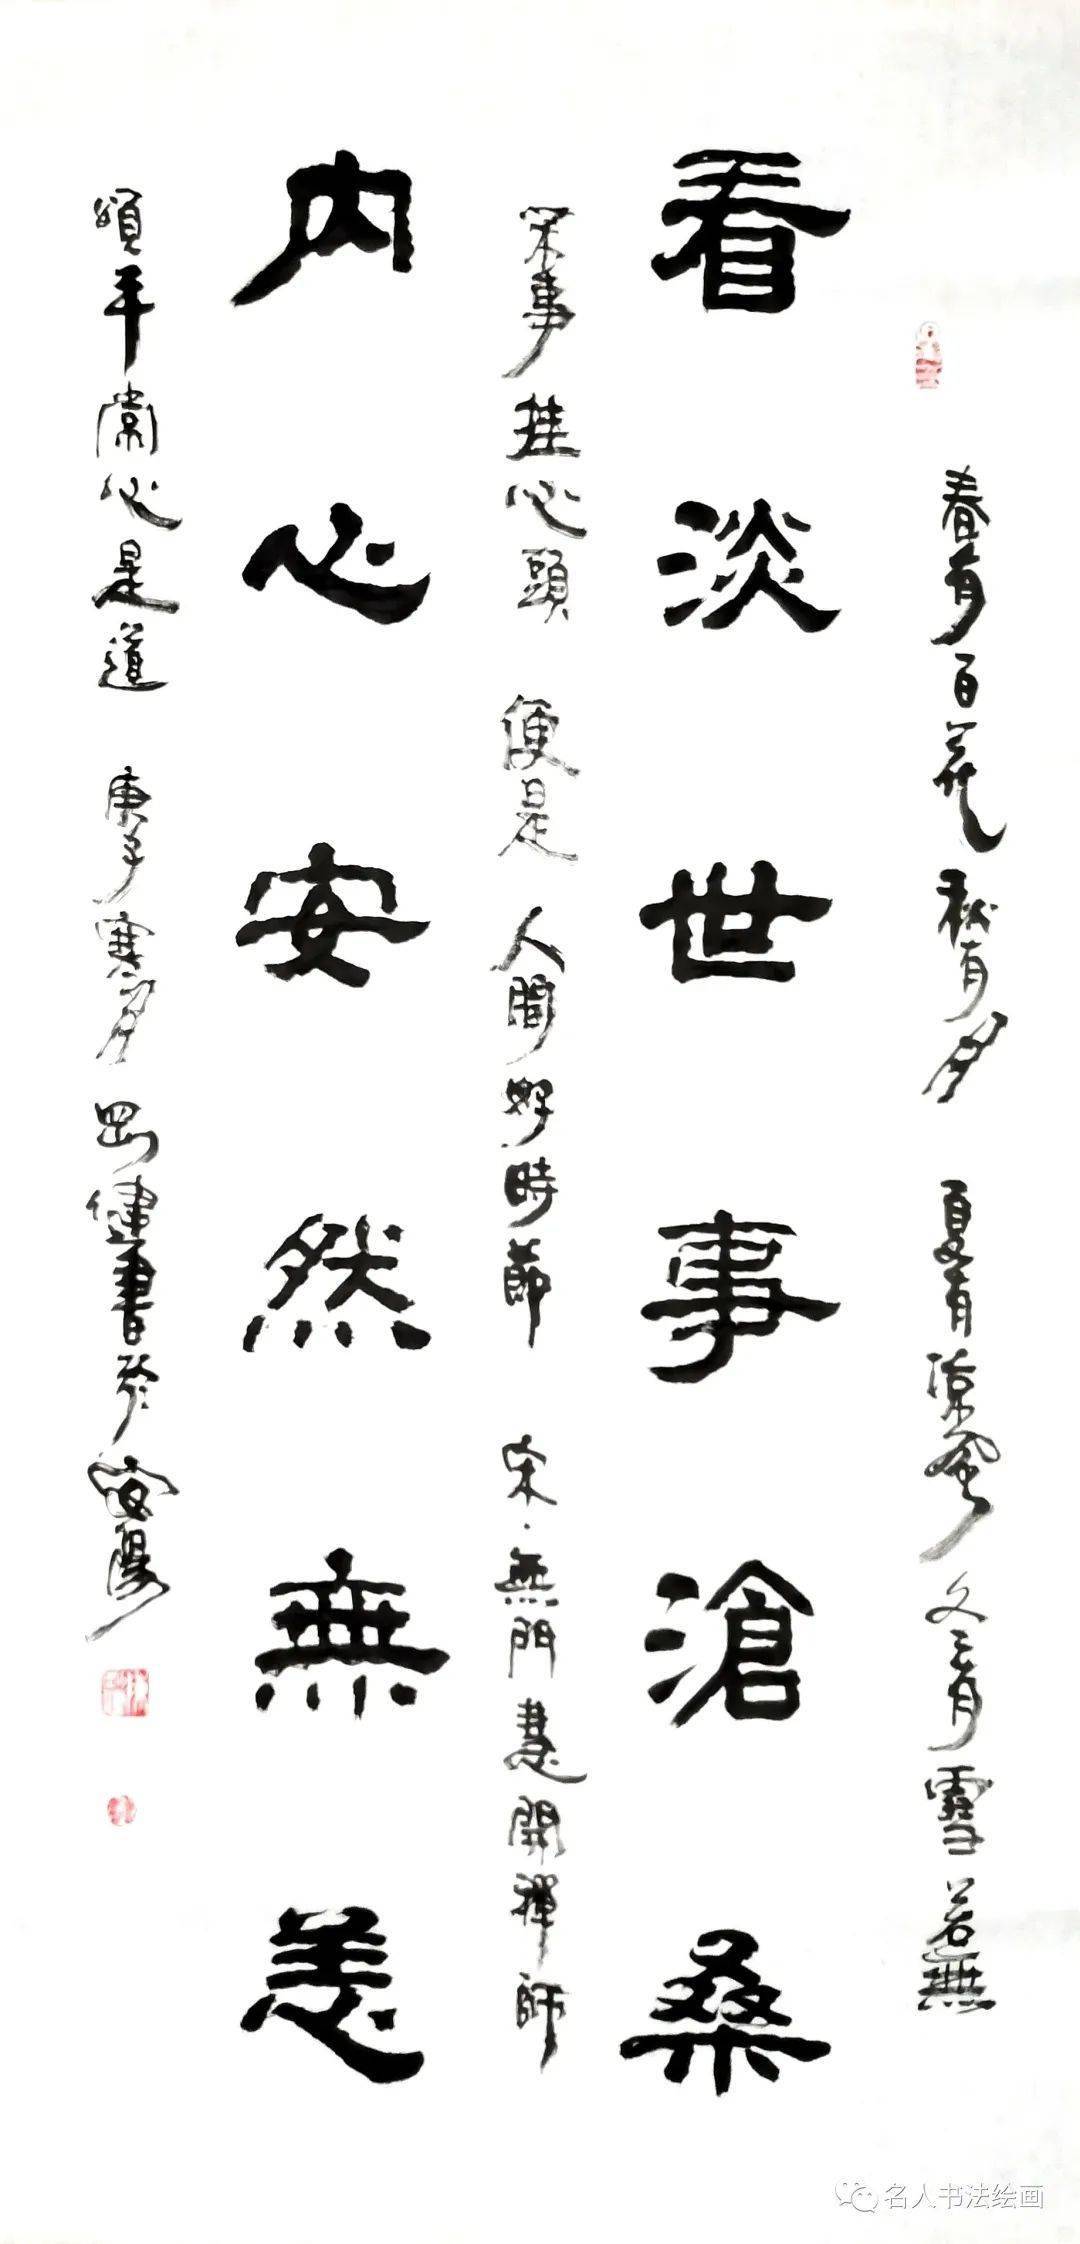 春有百花秋有月　夏有涼風冬有雪　若無
看淡世事滄桑
閑事挂心頭　便是人間好時節　宋·無門慧開禪師
内心安然無恙
頌平常心是道　庚子寒月　書於安陽
名人书法绘画